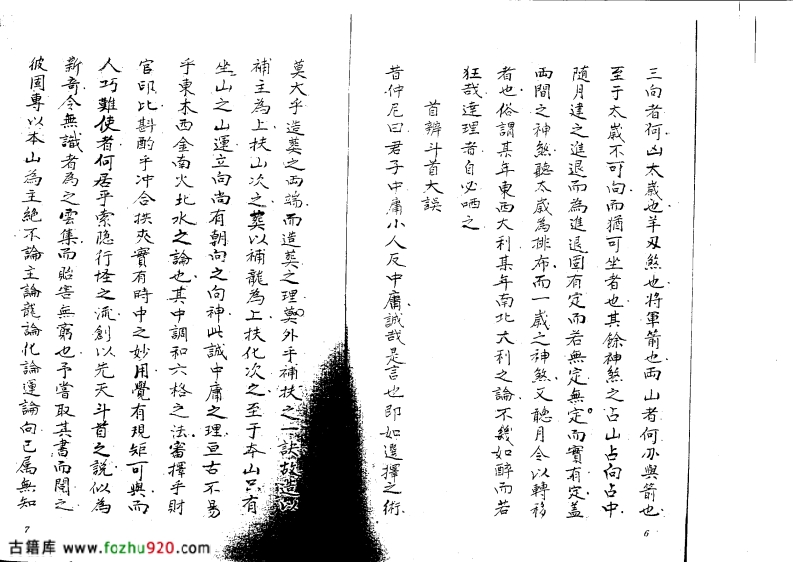 三向者何凶太歲也羊刃煞也將軍箭也兩山者何刃與箭也
至于太歲不可向而猶可坐者也其餘神煞之占山占向占中
隨月建之進退而為進退固有定而若無定無定而實有定蓋
兩間之神煞聽太歲為排布而一歲之神煞又聽月令以轉移
者也俗謂某年東西大利某年南北大利之論不幾如醉而若
狂哉達理者自必哂之
首辨斗首大誤
昔仲尼曰君子中庸小人反中庸誠哉是言也即如選擇之術
6
莫大乎造葬之兩端而造葬之理莫外乎補扶之一訣故造以
補主為上扶山次之葬以補龍為上扶化次之至于本山只有
坐山之山運立向尚有朝向之向神此誠中庸之理亘古不易
乎東木西金南火北水之論也其中調和六格之法審擇乎財
官印比斟酌乎冲合拱夾實有時中之妙用覺有規矩可與而
人巧難使者何居乎索隐行怪之流創以先天斗首之說似為
新奇令無識者為之雲集而貽害無窮也予嘗取其書而閱之
彼固專以本山為主絕不論主論龍論化論運論向已属無知
7
古籍库 www.fozhu920.com